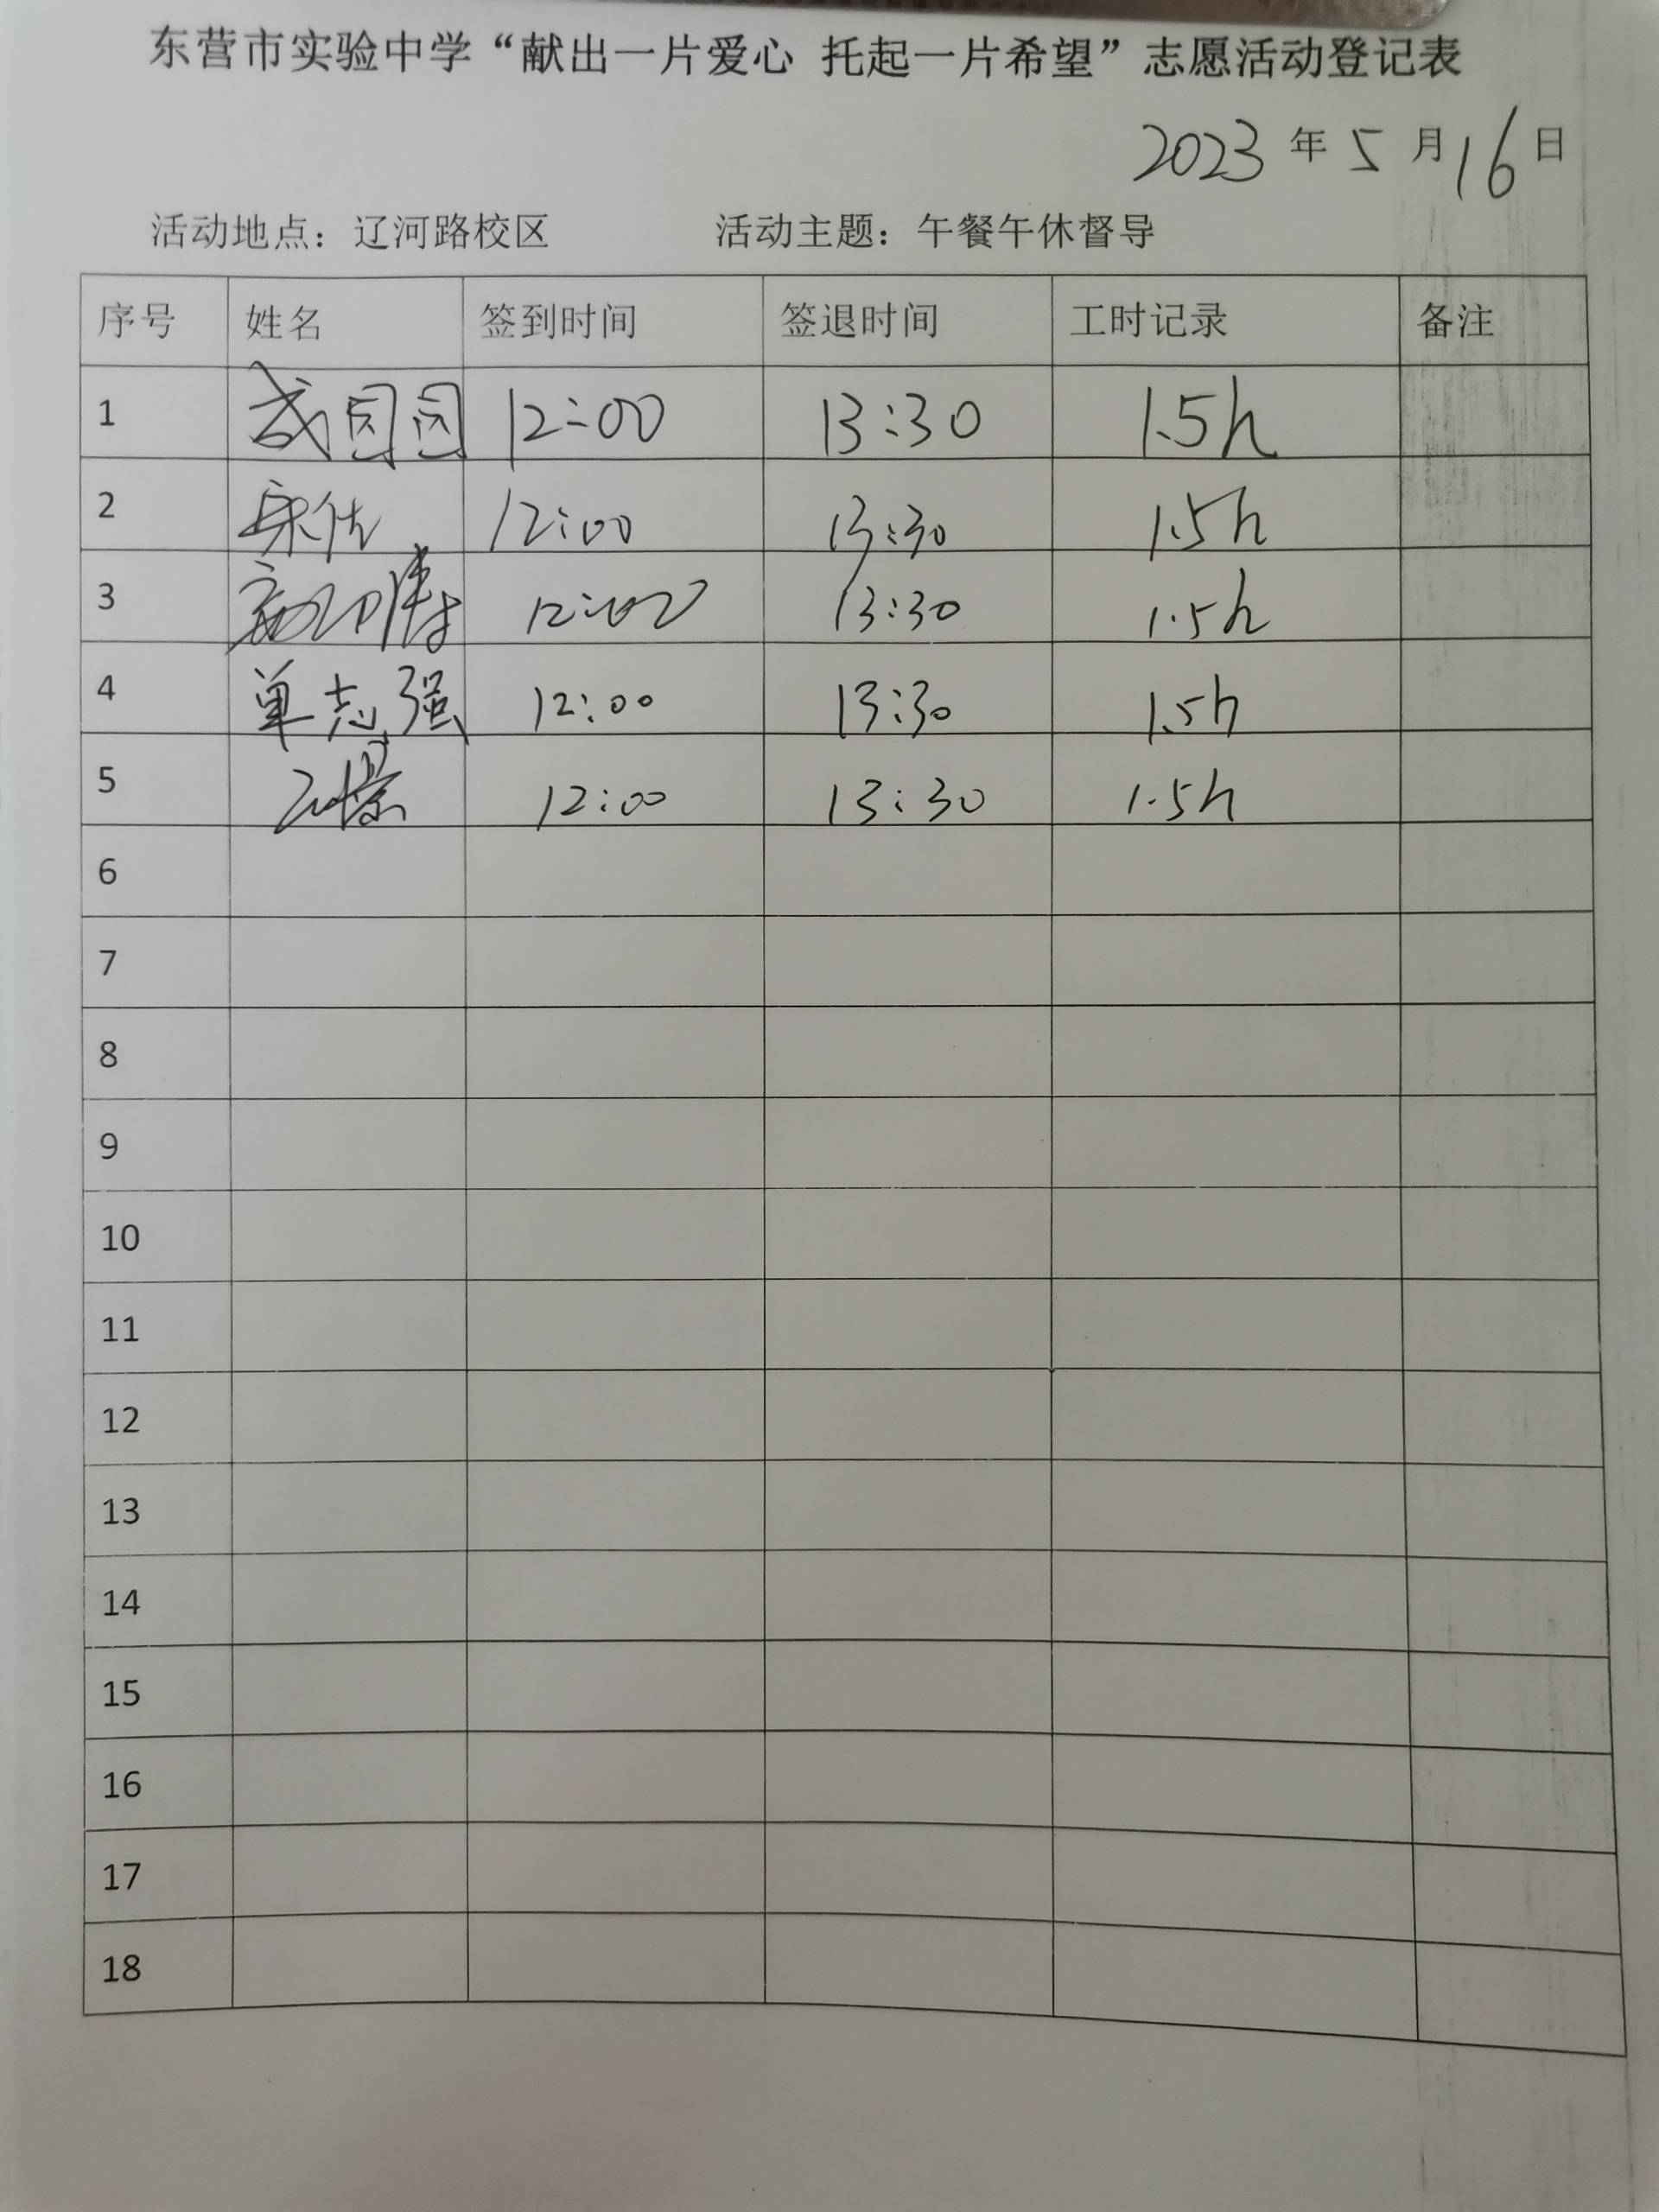 东营市实验中学“献出一片爱心 托起一片希望”志愿活动登记表
2023 年 5 月 16 日
活动地点：辽河路校区 活动主题：午餐午休督导
序号 姓名 签到时间 签退时间 工时记录 备注
1 12:00 13:30 1.5h
2 12:00 13:30 1.5h
3 12:00 13:30 1.5h
4 单志强 12:00 13:30 1.5h
5 12:00 13:30 1.5h
6
7
8
9
10
11
12
13
14
15
16
17
18